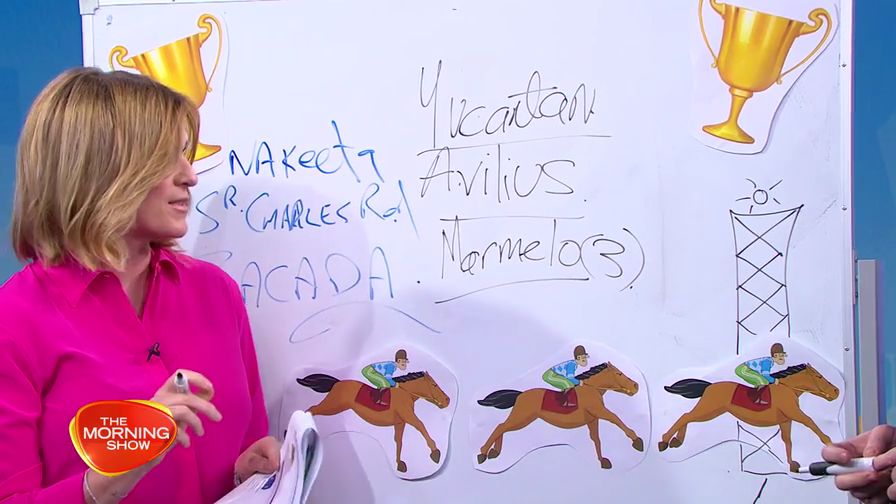 NAKeeta
Sr. CHARLES Rd
ACADA
Yucantan
Avilius
Marmelo (3)
THE
MORNING
SHOW